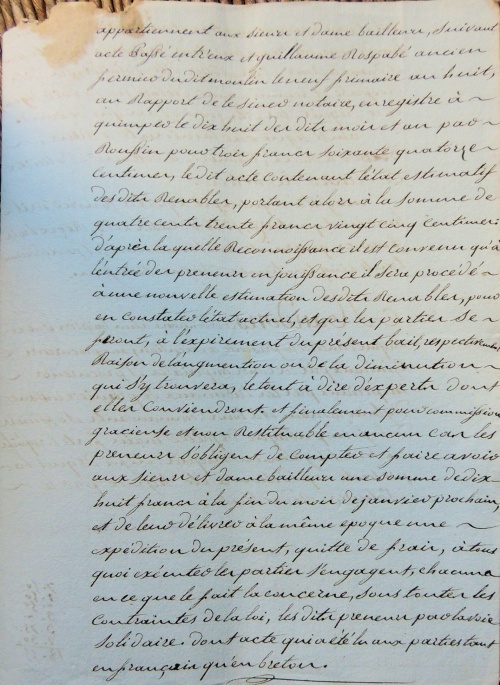 appartiennent aux sieur et dame bailleurs, suivant
acte passé entr'eux et guillaume Respabé ancien
fermier du dit moulin le neuf frimaire an huit,
au Rapport de le sineo notaire, enregistré à
quimper le dix huit des dits mois et an par
Roussin pour trois francs soixante quatorze
centimes, le dit acte contenant l'état estimatif
des dits Renables, portant alors à la somme de
quatre cents trente francs vingt cinq centimes.
d'après la quelle Reconnoissance il est convenu qu'à
l'entrée des preneurs en jouissance il sera procédé
à une nouvelle estimation des dits Renables, pour
en constater l'état actuel, et que les parties se
feront, à l'expirement du présent bail, respectivement
Raison de l'augmention ou de la diminution
qui s'y trouvera, le tout à dire d'experts dont
elles Conviendront. et finalement pour commission
gracieuse et non Restituable en aucun cas les
preneurs s'obligent de Compter et faire avoir
aux sieur et dame bailleurs une somme de dix-
huit francs à la fin du mois de janvier prochain,
et de leur délivrer à la même epoque une
expédition du présent, quitte de frais, à tout
quoi exécuter les parties s'engagent, chacune
en ce que le fait la concerne, sous toutes les
Contraintes de la loi, les dits preneurs par la voie
solidaire. dont acte qui a été lu aux parties tant
en français qu'en breton.